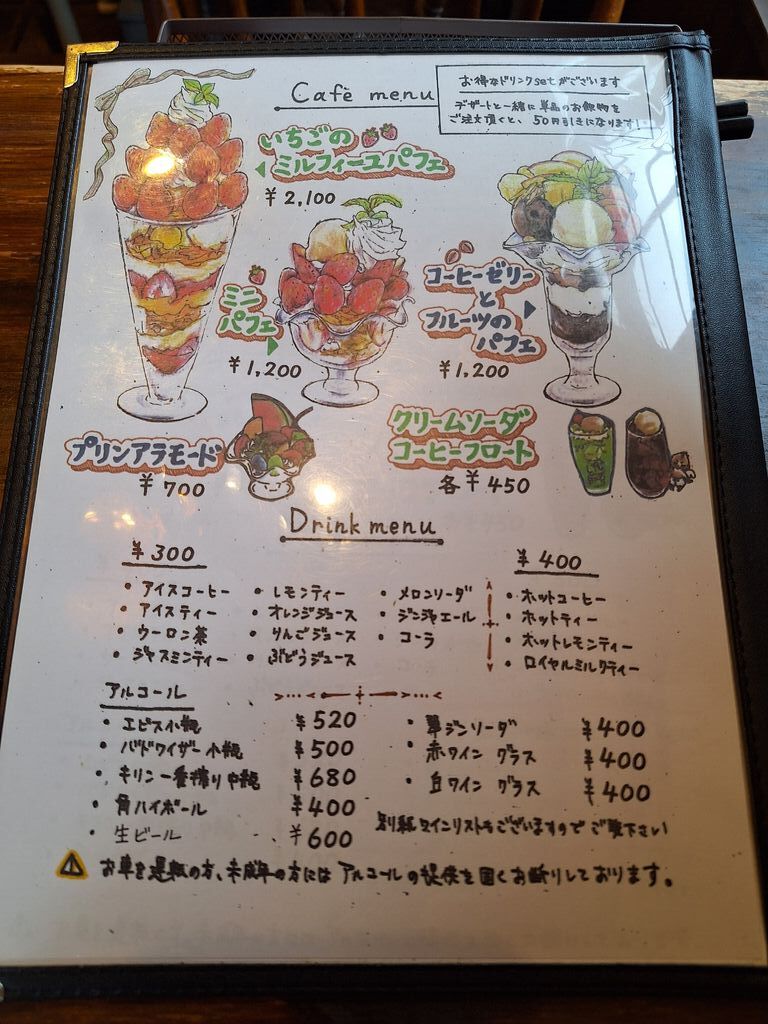 Cafè menu
お得なドリンクsetがございます
デザートと一緒に単品のお飲物を
ご注文頂くと、50円引きになります!
いちごの
ミルフィーユパフェ
¥2,100
ミニ
パフェ
¥1,200
コーヒーゼリー
と
フルーツの
パフェ
¥1,200
プリンアラモード
¥700
クリームソーダ
コーヒーフロート
各¥450
Drink menu
¥300
・アイスコーヒー
・アイスティー
・ウーロン茶
・ジャスミンティー
・レモンティー
・オレンジジュース
・りんごジュース
・ぶどうジュース
・メロンソーダ
・ジンジャエール
・コーラ
¥400
・ホットコーヒー
・ホットティー
・ホットレモンティー
・ロイヤルミルクティー
アルコール
・エビス小瓶 ¥520
・バドワイザー小瓶 ¥500
・キリン一番搾り中瓶 ¥680
・角ハイボール ¥400
・生ビール ¥600
・翠ジンソーダ ¥400
・赤ワイン グラス ¥400
・白ワイン グラス ¥400
別紙ワインリストもございますのでご覧下さい
お車を運転の方、未成年の方にはアルコールの提供を固くお断りしております。